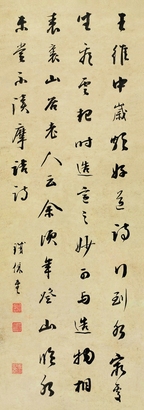 王維中歲頗好道詩行到水窮處
坐看雲起時造意之妙與造物相
表裏山谷老人云余頃年登山臨水
未嘗不讀摩詰詩